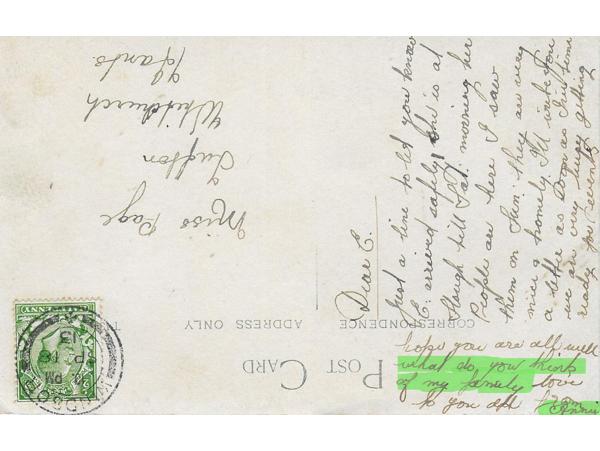 POST CARD
CORRESPONDENCE
ADDRESS ONLY
Dear E.
Just a line to let you know
E. arrived safely, she is at
Slough till Sat. morning her
People are here I saw
them on Sun. they are very
nice & homely I'll write you
a letter as soon as I've time
we are very busy getting
ready for
hope you are all well
what do you think
of my family love
to you all from
Annie
Miss Page
Tufton
Whitchurch
Hants
WINDSOR
PM
13